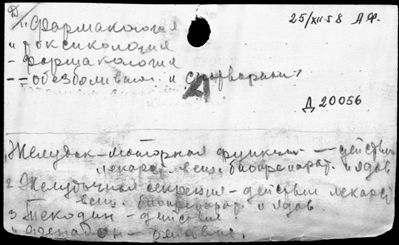 25/XII-58 А.Ф.
"Фармакология
" токсикология
- фармакология
-- обезболивающ. и снотворный
21
Д 20056
Желудок - моторная функция - действие
лекарств. вещ. биопрепарат. и ядов
2 Желудочная секреция - действие лекарст
вещ. биопрепарат. и ядов
3 Текодин - действие
" Фенадон - действие.